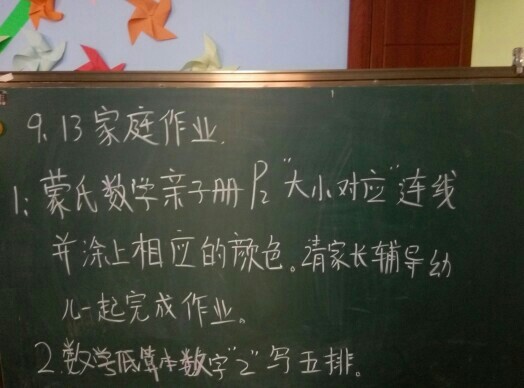 9.13家庭作业.
1:蒙氏数学亲子册P2"大小对应"连线
并涂上相应的颜色。请家长辅导幼
儿一起完成作业。
2.数学低算本数字"2"写五排。